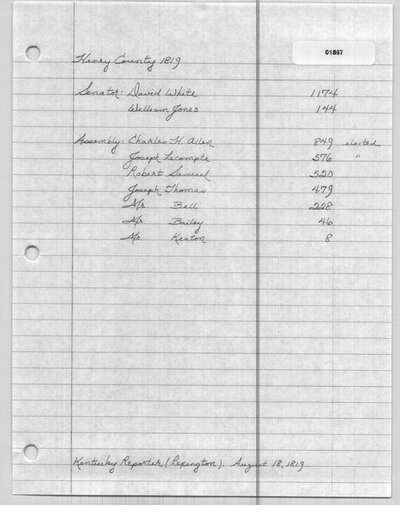 01867
Henry County 1819
Senator: David White 1174
William Jones 144
Assembly: Charles H. Allen 849 elected
Joseph Lecompte 576 "
Robert Samuel 520
Joseph Thomas 479
Mr. Bell 228
Mr. Bailey 46
Mr. Keaton 8
Kentucky Reporter (Lexington). August 18, 1819.